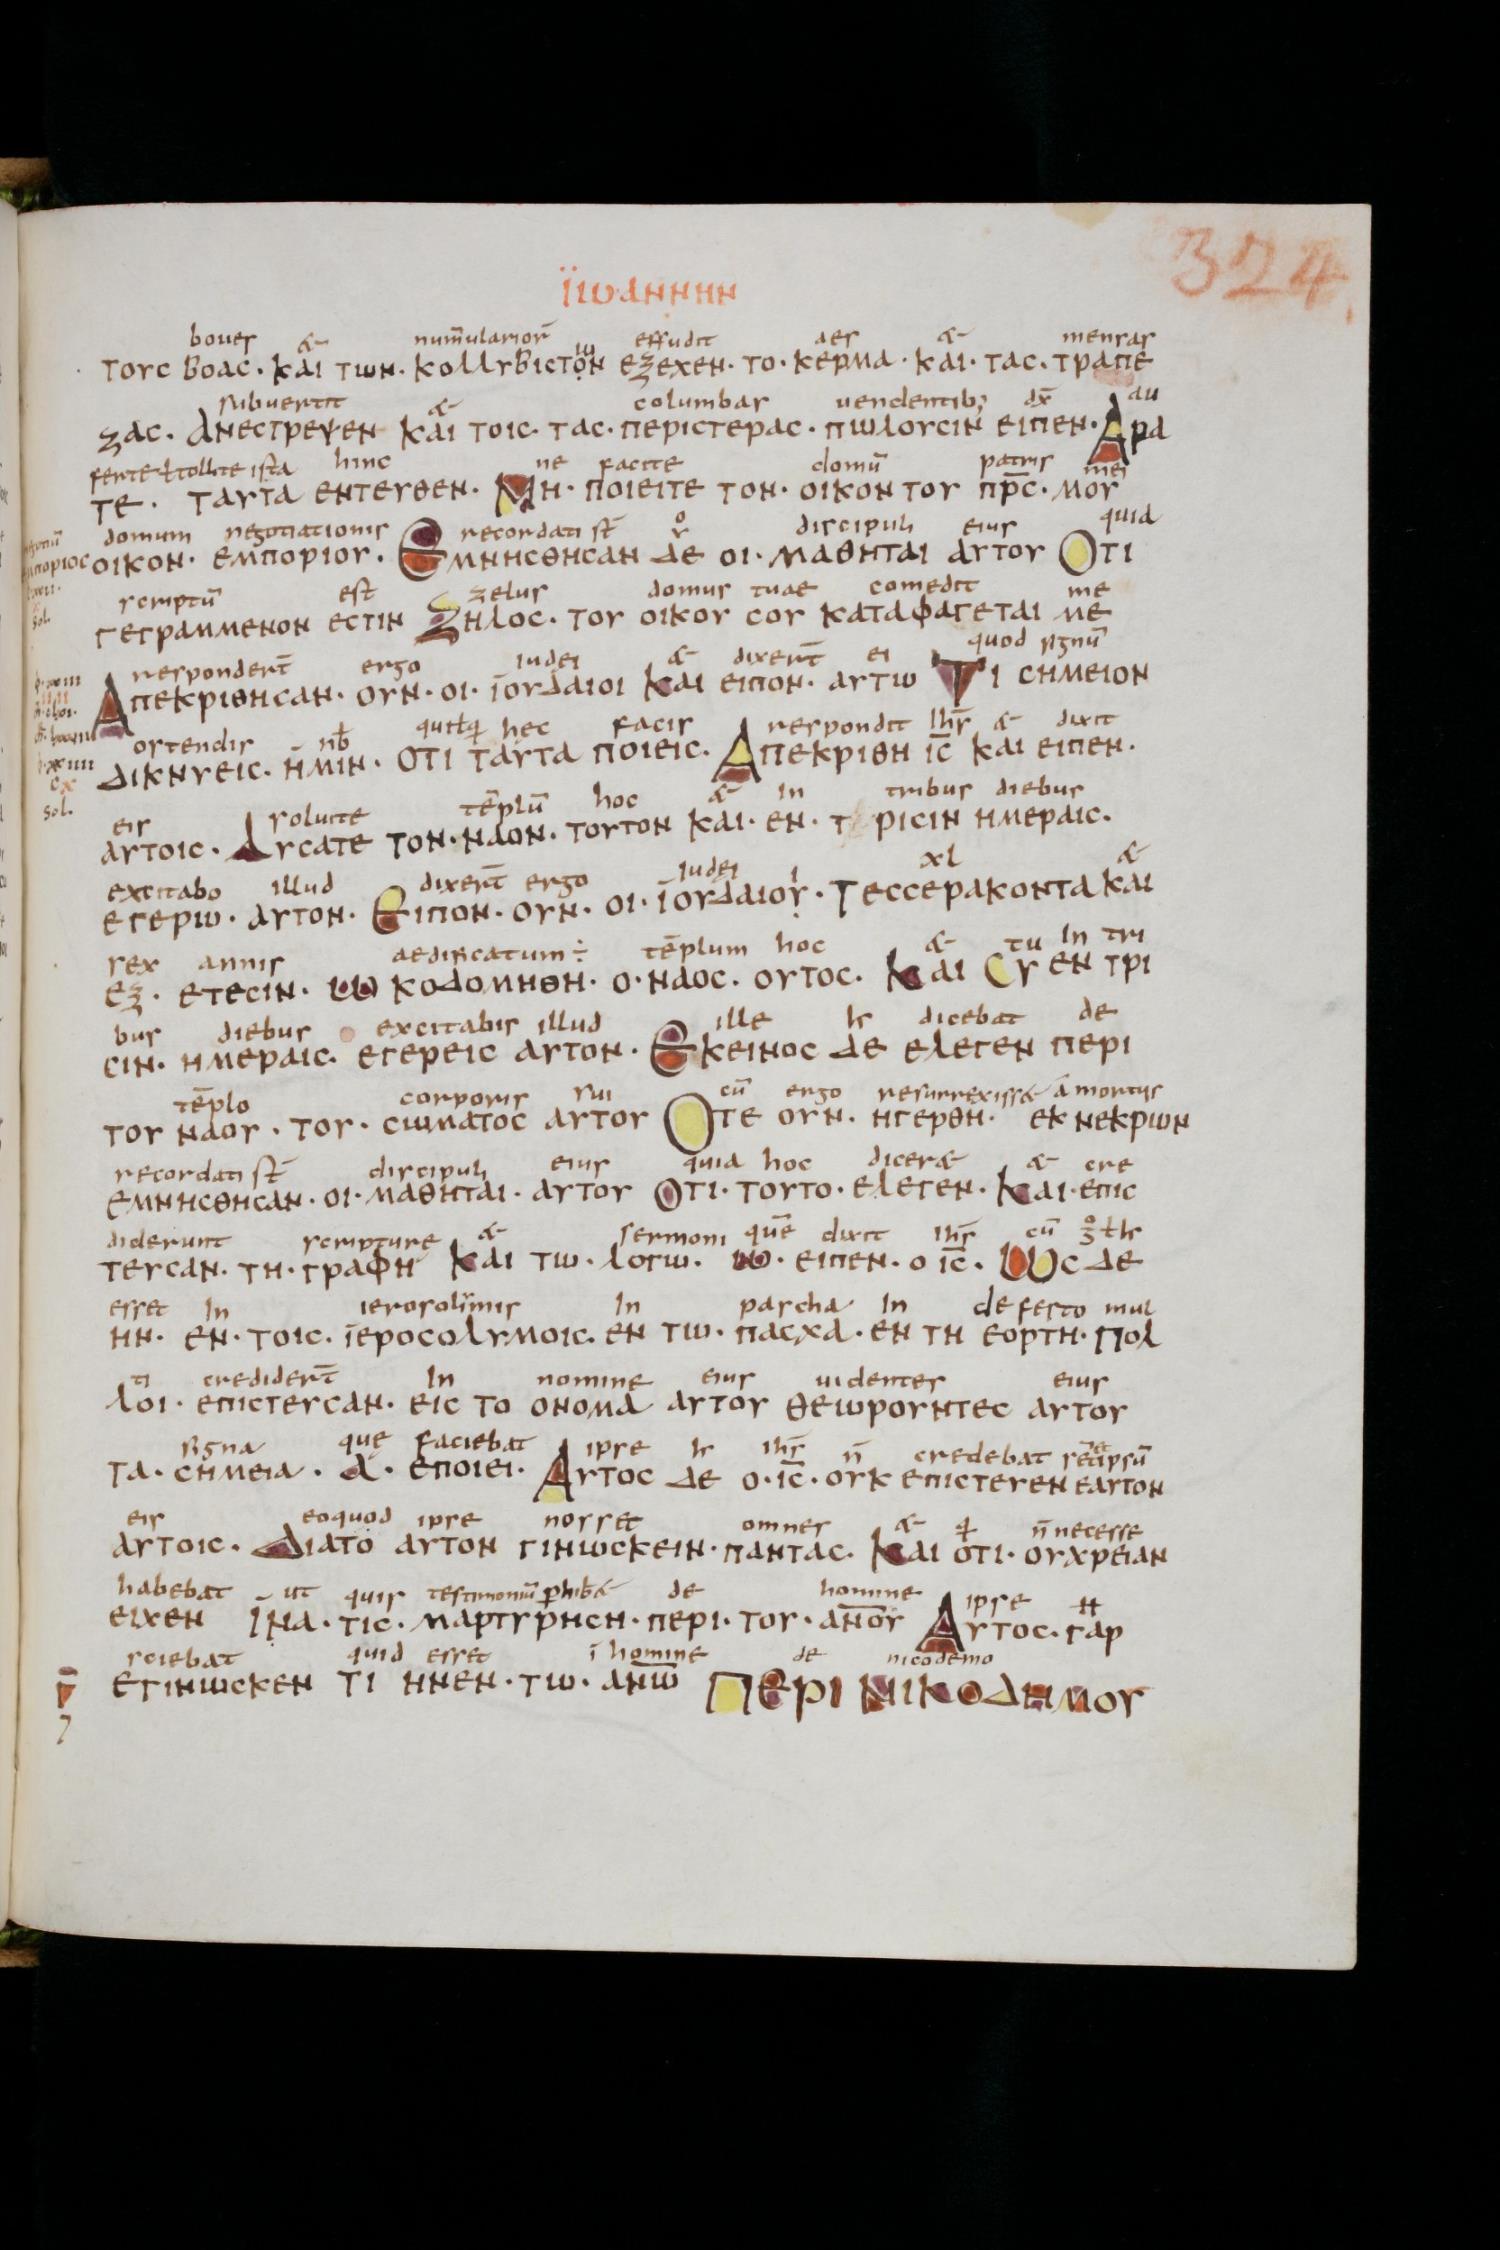 ΪΙΩΑΝΝΗΝ
324
boues & num̄ularior̄ effudit aes & mensas
ΤΟΥС ΒΟΑС · ΚΑΙ ΤΩΝ · ΚΟΛΛΥΒΙСΤΟΝ ΕΞΕΧΕΝ · ΤΟ · ΚΕΡΜΑ · ΚΑΙ · ΤΑС · ΤΡΑΠΕ
subuertit & columbas uendentib; dx̄ au
ΖΑС · ΑΝΕСΤΡΕΨΕΝ ΚΑΙ ΤΟΙС · ΤΑС · ΠΕΡΙСΤΕΡΑС · ΠΩΛΟΥСΙΝ ΕΙΠΕΝ · ΑΡΑ
ferte ł tollite ista hinc ne facite domū patris mei
ΤΕ · ΤΑΥΤΑ ΕΝΤΕΥΘΕΝ · ΜΗ · ΠΟΙΕΙΤΕ ΤΟΝ · ΟΙΚΟΝ ΤΟΥ ΠΡ̄С · ΜΟΥ
domum negotiationis recordati st̄ discipuli eius quia
ΟΙΚΟΝ · ΕΜΠΟΡΙΟΥ · ΕΜΝΗСΘΗСΑΝ ΔΕ ΟΙ · ΜΑΘΗΤΑΙ ΑΥΤΟΥ ΟΤΙ
scriptū est zelus domus tuae comedit me
ΓΕΓΡΑΜΜΕΝΟΝ ΕСΤΙΝ ΖΗΛΟС · ΤΟΥ ΟΙΚΟΥ СΟΥ ΚΑΤΑΦΑΓΕΤΑΙ ΜΕ
responder̄t ergo iudei & dixer̄t ei quod signū
ΑΠΕΚΡΙΘΗСΑΝ · ΟΥΝ · ΟΙ · ΙΟΥΔΑΙΟΙ ΚΑΙ ΕΙΠΟΝ · ΑΥΤΩ ΤΙ СΗΜΕΙΟΝ
ostendis nb̄ hec facis respondit ih̄s & dixit
ΔΙΚΝΥΕΙС · ΗΜΙΝ · ΟΤΙ ΤΑΥΤΑ ΠΟΙΕΙС · ΑΠΕΚΡΙΘΗ ΙС̄ ΚΑΙ ΕΙΠΕΝ ·
eis soluite tēplū hoc & in tribus diebus
ΑΥΤΟΙС · ΛΥСΑΤΕ ΤΟΝ · ΝΑΟΝ · ΤΟΥΤΟΝ ΚΑΙ · ΕΝ · ΤΡΙСΙΝ ΗΜΕΡΑΙС ·
excitabo illud dixer̄t ergo iudei xl &
ΕΓΕΡΩ · ΑΥΤΟΝ · ΕΙΠΟΝ · ΟΥΝ · ΟΙ · ΙΟΥΔΑΙΟΥ · ΤΕССΕΡΑΚΟΝΤΑ ΚΑΙ
sex annis aedificatum ÷ tēplum hoc & tu in tri
ΕΞ · ΕΤΕСΙΝ · ΩΚΟΔΟΜΗΘΗ · Ο · ΝΑΟС · ΟΥΤΟС · ΚΑΙ СΥ ΕΝ ΤΡΙ
bus diebus excitabis illud ille dicebat de
СΙΝ · ΗΜΕΡΑΙС · ΕΓΕΡΕΙС ΑΥΤΟΝ · ΕΚΕΙΝΟС ΔΕ ΕΛΕΓΕΝ ΠΕΡΙ
tēplo corporis sui cū ergo resurrexiss& a mortuis
ΤΟΥ ΝΑΟΥ · ΤΟΥ · СΩΜΑΤΟС ΑΥΤΟΥ ΟΤΕ ΟΥΝ · ΗΓΕΡΘΗ · ΕΚ ΝΕΚΡΙΩΝ
recordati st̄ discipuli eius quia hoc dicer& & cre
ΕΜΝΗСΘΗСΑΝ · ΟΙ · ΜΑΘΗΤΑΙ · ΑΥΤΟΥ ΟΤΙ · ΤΟΥΤΟ · ΕΛΕΓΕΝ · ΚΑΙ · ΕΠΙС
diderunt scripture & sermoni quē dixit ih̄s cū
ΤΕΥСΑΝ · ΤΗ · ΓΡΑΦΗ ΚΑΙ ΤΩ · ΛΟΓΩ · Ω · ΕΙΠΕΝ · Ο ΙС̄ · ΩС ΔΕ
esset in ierosolimis in pascha in de festo mul
ΗΝ · ΕΝ · ΤΟΙС · ΙΕΡΟСΟΛΥΜΟΙС · ΕΝ ΤΩ · ΠΑСΧΑ · ΕΝ ΤΗ ΕΟΡΤΗ · ΠΟΛ
ti credider̄t in nomine eius uidentes eius
ΛΟΙ · ΕΠΙСΤΕΥСΑΝ · ΕΙС ΤΟ ΟΝΟΜΑ ΑΥΤΟΥ ΘΕΩΡΟΥΝΤΕС ΑΥΤΟΥ
signa que faciebat ipse ih̄s n̄ credebat
ΤΑ · СΗΜΕΙΑ · Α · ΕΠΟΙΕΙ · ΑΥΤΟС ΔΕ Ο · ΙС̄ · ΟΥΚ ΕΠΙСΤΕΥΕΝ ΕΑΥΤΟΝ
eis eoquod ipse nosset omnes & n̄ necesse
ΑΥΤΟΙС · ΔΙΑΤΟ ΑΥΤΟΝ ΓΙΝΩСΚΕΙΝ · ΠΑΝΤΑС · ΚΑΙ ΟΤΙ · ΟΥΧΡΕΙΑΝ
habebat ut quis testimoniū de homine ipse
ΕΙΧΕΝ ΙΝΑ · ΤΙС · ΜΑΡΤΥΡΗСΗ · ΠΕΡΙ · ΤΟΥ · ΑΝΟΥ ΑΥΤΟС · ΓΑΡ
sciebat quid esset ī homine de nicodemo
ΕΓΙΝΩСΚΕΝ ΤΙ ΗΝΕΝ · ΤΩ · ΑΝΩ ΠΕΡΙ ΝΙΚΟΔΗΜΟΥ